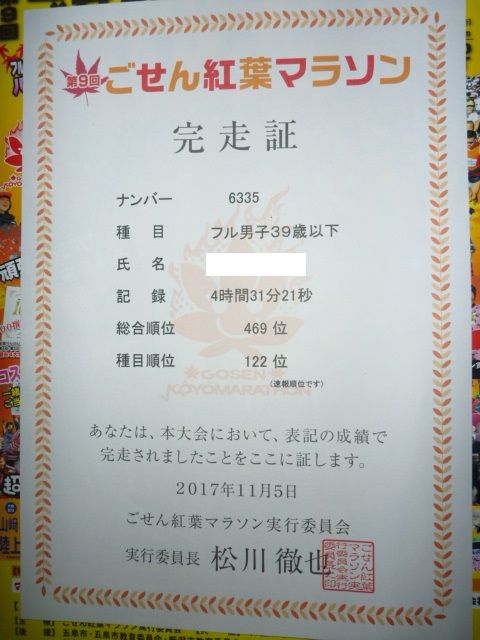 第9回 ごせん紅葉マラソン
完走証
ナンバー 6335
種目 フル男子39歳以下
氏名
記録 4時間31分21秒
総合順位 469 位
種目順位 122 位
(速報順位です)
GOSEN
KOYOMARATHON
あなたは、本大会において、表記の成績で
完走されましたことをここに証します。
2017年11月5日
ごせん紅葉マラソン実行委員会
実行委員長 松川徹也